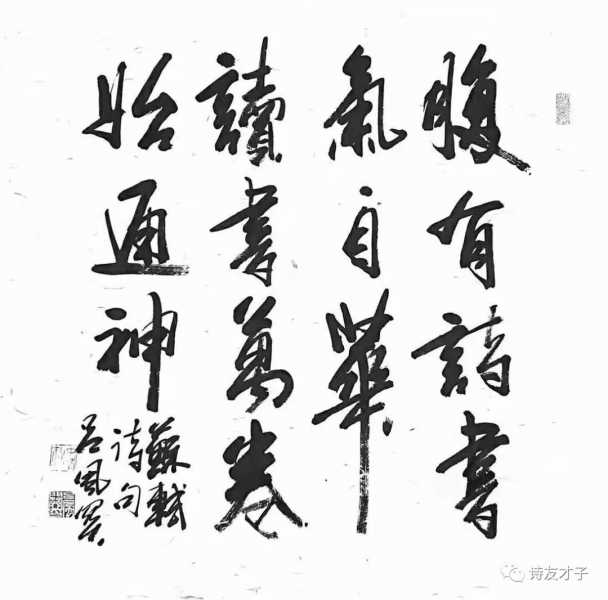 腹有詩書
氣自華
讀書萬卷
始通神
蘇軾
詩句
呂風
诗友才子